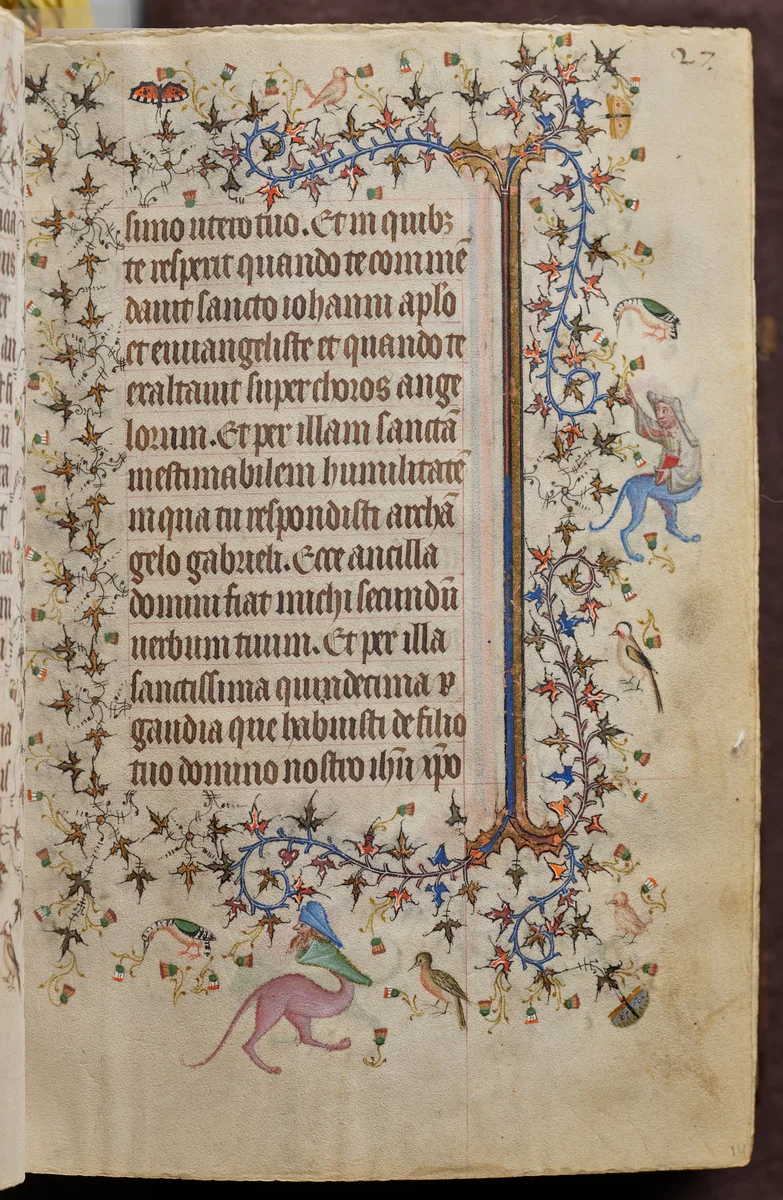 27.
simo utero tuo. Et in quibꝫ
te respexit quando te com̄me
dauit sancto iohanni aplo
et euuangeliste et quando te
exaltauit super choros ange
lorum. Et per illam sanctā
inestimabilem humilitatē
in qua tu respondisti archā
gelo gabrieli. Ecce ancilla
domini fiat michi secundū
uerbum tuum. Et per illa
sanctissima quindecima v
gaudia que habuisti de filio
tuo domino nostro ihū xpo